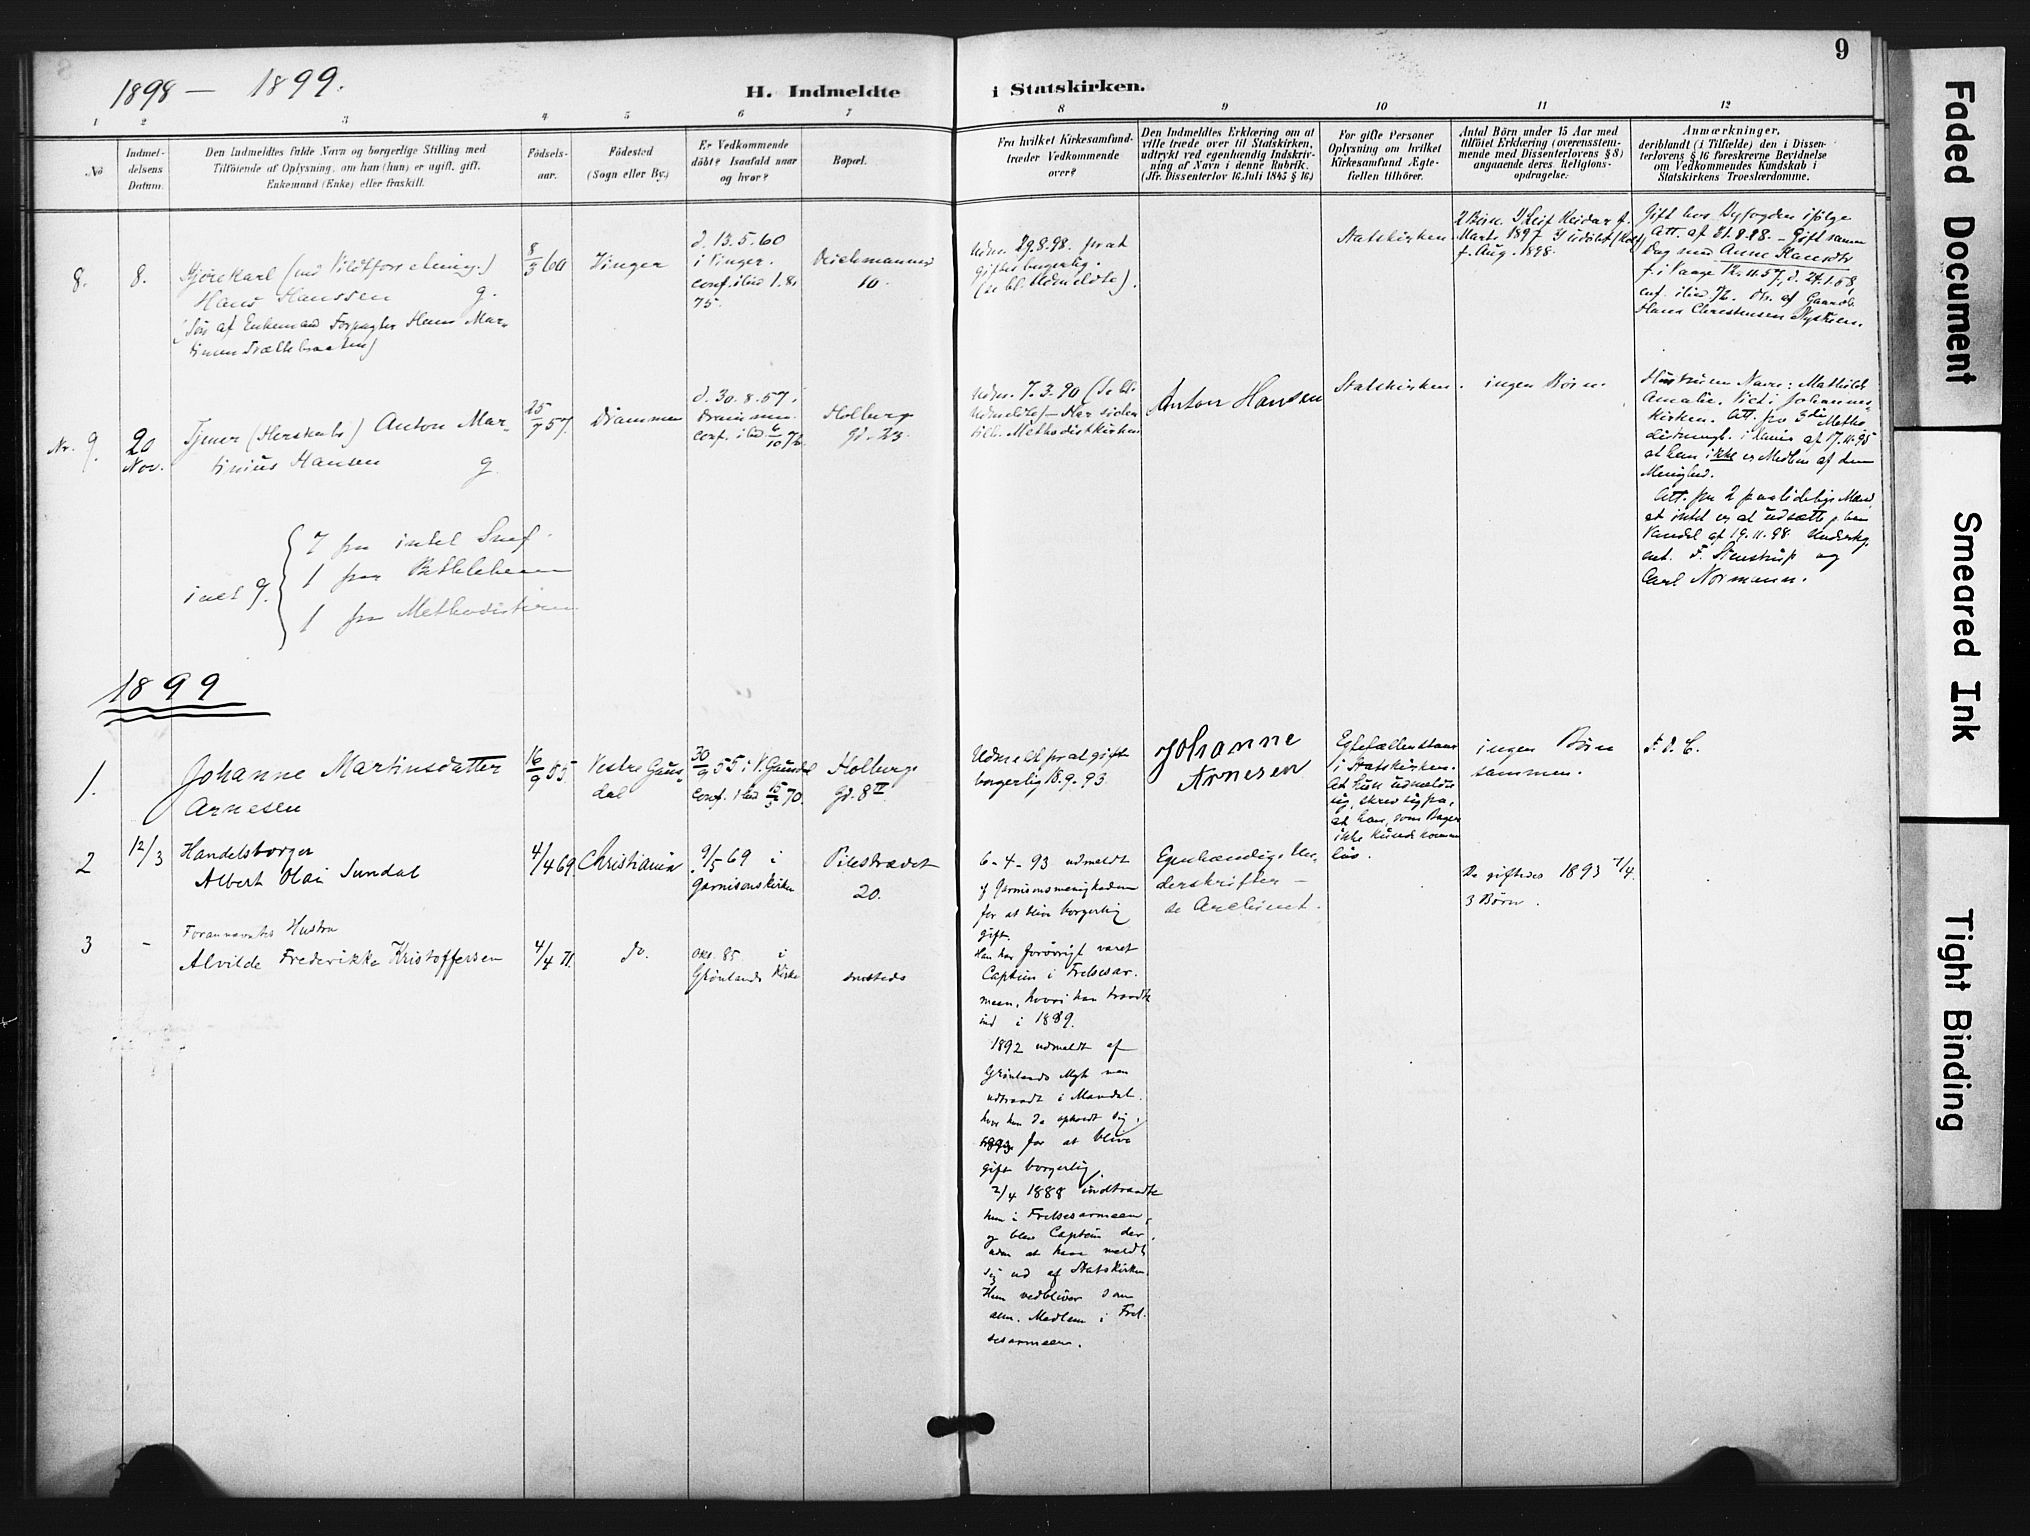 1898 — 1899.
H. Indmeldte i Statskirken.
9
1 2 3 4 5 6 7 8 9 10 11 12
No
Indmel-
delsens
Datum.
Den Indmeldtes fulde Navn og borgerlige Stilling med
Tilföiende af Oplysning, om han (hun) er ugift, gift,
Enkemand (Enke) eller fraskilt.
Födsels-
aar.
Födested
(Sogn eller By.)
Er Vedkommende
döbt? Isaafald naar
og hvor?
Bopæl.
Fra hvilket Kirkesamfund
træder Vedkommende
over?
Den Indmeldtes Erklæring om at
ville træde over til Statskirken,
udtrykt ved egenhændig Indskriv-
ning af Navn i denne Rubrik.
(Jfr. Dissenterlov 16. Juli 1845 § 16.)
For gifte Personer
Oplysning om hvilket
Kirkesamfund Ægte-
fællen tilhörer.
Antal Börn under 15 Aar med
tilföiet Erklæring (overensstem-
mende med Dissenterlovens § 8)
angaaende deres Religions-
opdragelse.
Anmærkninger,
deriblandt (i Tilfælde) den i Dissen-
terlovens § 16 foreskrevne Bevidnelse
om Vedkommendes Kundskab i
Statskirkens Troeslærdomme.
8.
8.
Kjørekarl
Hans Hanssen g.
(Søn af Enkemand Forpagter Hans Mar-
8/3 60
Vinger
d. 13.5.60
i Vinger.
conf. ibid 1.8.
75.
Deichmannsg
10.
Udm. 29.8.98 for at
giftes borgerlig.
(se bl. Udmeldte).
Statskirken.
2 Børn. 1) Leif Reidar f.
Marts 1897. 2) udøbt
f. Aug. 1898.
Gift hos Byfogden ifølge
Att. af 31.8.98. – Gift samme
Dag med Anne Hansdtr
f. i Vaage 12.11.57, d. 24.1.58,
conf. ibid 72. Dtr. af Gaardb.
Hans Christensen
Nr. 9.
20
Nov.
Tjener Anton Mar-
tinius Hansen g.
25/7 57
Drammen
d. 30.8.57 i
Drammen.
conf. ibid 6/10 72
Holbergs
gd. 23.
Udm. 7.3.90 (Se bl.
Udmeldte) – Har siden
tilh. Methodistkirken
Anton Hansen
Statskirken.
ingen Børn.
Hustruens Navn: Mathilde
Amalie. Viet i Johannes-
kirken. Att. fra 3die Metho
distmenigh. i Xania af 17.11.95
at han ikke er Medlem af den
Menighed.
Att. fra 2 paalidelige Mænd
at intet er at udsætte p. han
Vandel af 19.11.98. Underteg
net. F. Stenstrup og
Carl Normann.
ialt 9.
7 fra intet Smf.
1 fra Bethlehem
1 fra Methodistkirken
1899
1.
Johanne Martinsdatter
Arnesen
16/9 55
Vestre Gaus-
dal
30/9 55 i V. Gausdal
Conf. ibid 70.
Holbergs
Gd. 8 II
Udmeldt for at gifte
borgerlig 18.9.93.
Johanne
Arnesen
Egtefællen staar
i Statskirken.
At hun udmeldte
sig, skrev sig fra,
at han, som Bager
ikke kunde komme
løs.
ingen Børn
sammen.
F. d. C.
2
12/3
Handelsborger
Albert Olai Sundal
4/4 69
Christiania
9/5 69 i
Garnisonskirken
Pilestrædet
20.
6-4-93 udmeldt
af Garnisonsmenigheden
for at blive borgerlig
gift.
Han har forøvrigt været
Captein i Frelsesar-
meen, hvori han traadte
ind i 1889.
Egenhændige Un-
derskrifter –
se Archivet.
De giftedes 1893 7/4.
3 Børn.
3
–
Forannævntes Hustru
Alvilde Frederikke Kristoffersen
4/4 71
do.
Okt. 85 i
Grønlands Kirke
smsteds
1892 udmeldt af
Grønlands Mgh men
udtraadt i Mandal.
hvor hun da opholdt sig.
for at blive
gift borgerlig.
2/4 1888 indtraadte
hun i Frelsesarmeen,
og blev Captein der,
uden at have meldt
sig ud af Statskirken.
Hun vedbliver som
alm. Medlem i Frel-
sesarmeen.
Faded Document
Smeared Ink
Tight Binding